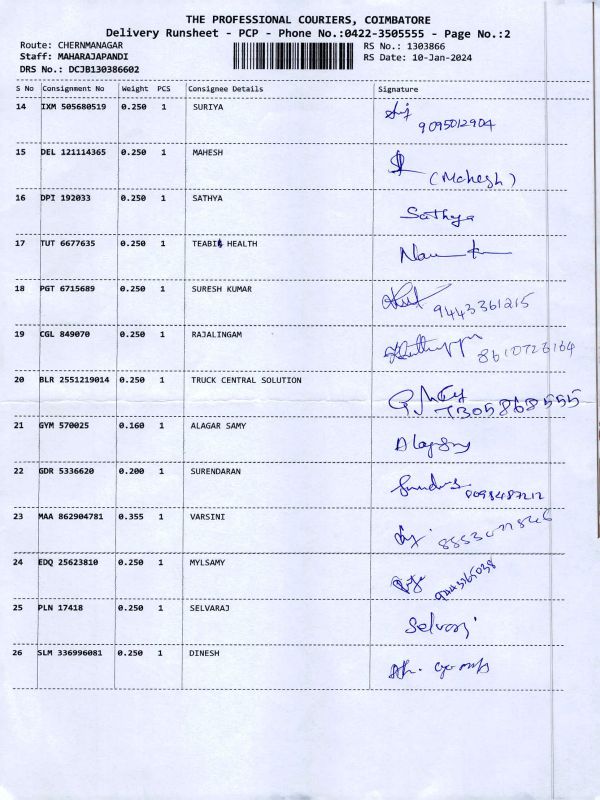 THE PROFESSIONAL COURIERS, COIMBATORE
Delivery Runsheet - PCP - Phone No.:0422-3505555 - Page No.:2
Route: CHERNMANAGAR RS No.: 1303866
Staff: MAHARAJAPANDI RS Date: 10-Jan-2024
DRS No.: DCJB130386602
S No Consignment No Weight PCS Consignee Details Signature
14 IXM 505680519 0.250 1 SURIYA
9095012904
15 DEL 121114365 0.250 1 MAHESH
(Mahesh)
16 DPI 192033 0.250 1 SATHYA
Sathya
17 TUT 6677635 0.250 1 TEABIT HEALTH
18 PGT 6715689 0.250 1 SURESH KUMAR
9443361215
19 CGL 849070 0.250 1 RAJALINGAM
20 BLR 2551219014 0.250 1 TRUCK CENTRAL SOLUTION
21 GYM 570025 0.160 1 ALAGAR SAMY
22 GDR 5336620 0.200 1 SURENDARAN
23 MAA 862904781 0.355 1 VARSINI
24 EDQ 25623810 0.250 1 MYLSAMY
25 PLN 17418 0.250 1 SELVARAJ
Selvaraj
26 SLM 336996081 0.250 1 DINESH